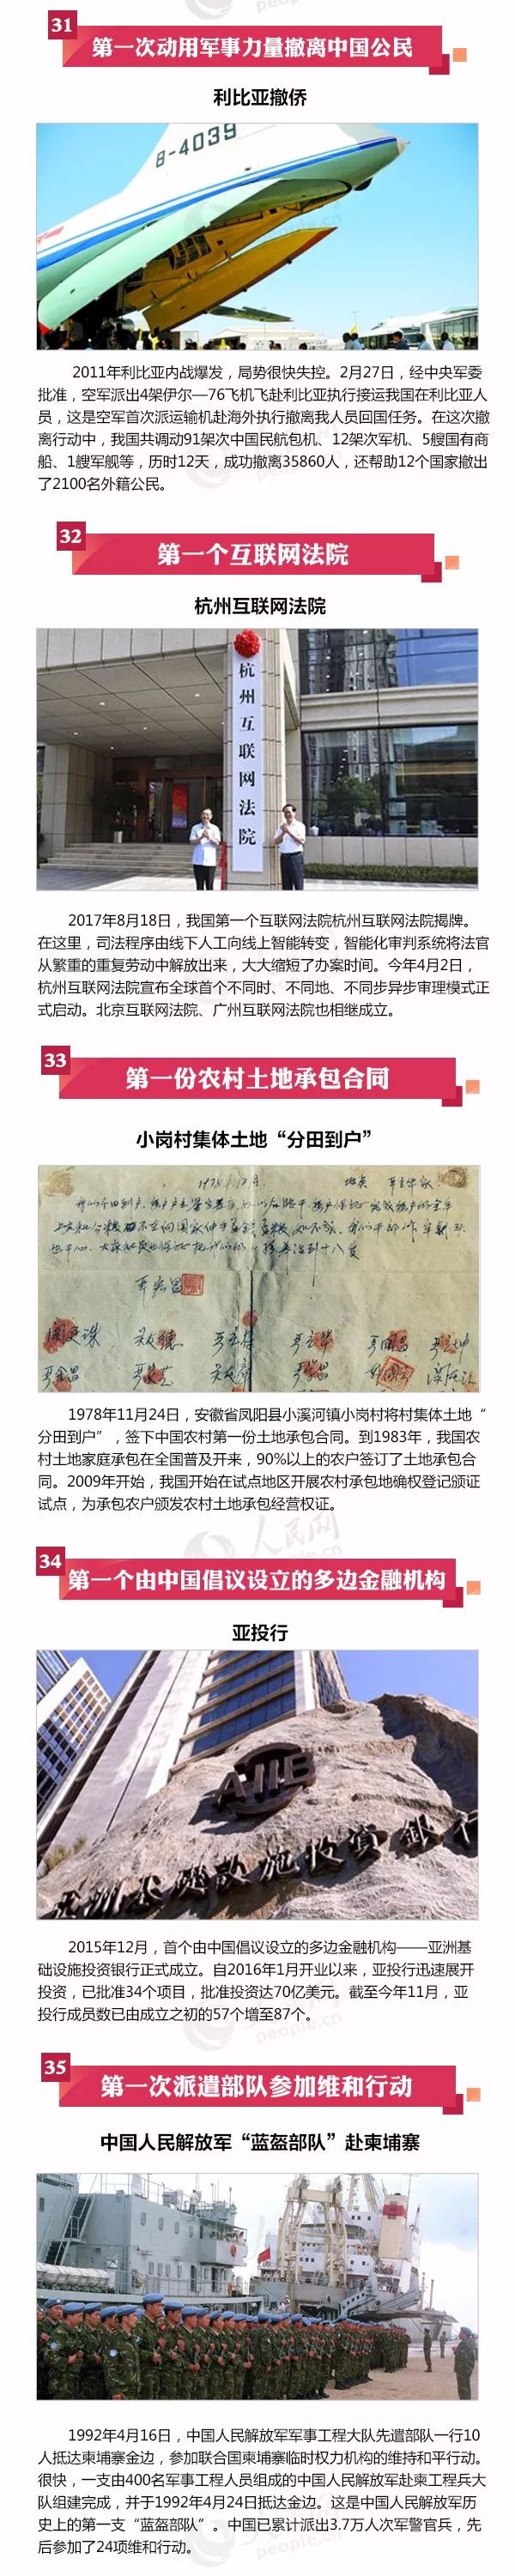 31
第一次动用军事力量撤离中国公民
利比亚撤侨
B-4039
2011年利比亚内战爆发，局势很快失控。2月27日，经中央军委
批准，空军派出4架伊尔—76飞机飞赴利比亚执行接运我国在利比亚人
员，这是空军首次派运输机赴海外执行撤离我人员回国任务。在这次撤
离行动中，我国共调动91架次中国民航包机、12架次军机、5艘国有商
船、1艘军舰等，历时12天，成功撤离35860人，还帮助12个国家撤出
了2100名外籍公民。
32
第一个互联网法院
杭州互联网法院
杭州互联网法院
2017年8月18日，我国第一个互联网法院杭州互联网法院揭牌。
在这里，司法程序由线下人工向线上智能转变，智能化审判系统将法官
从繁重的重复劳动中解放出来，大大缩短了办案时间。今年4月2日，
杭州互联网法院宣布全球首个不同时、不同地、不同步异步审理模式正
式启动。北京互联网法院、广州互联网法院也相继成立。
33
第一份农村土地承包合同
小岗村集体土地“分田到户”
1978年11月24日，安徽省凤阳县小溪河镇小岗村将村集体土地“
分田到户”，签下中国农村第一份土地承包合同。到1983年，我国农
村土地家庭承包在全国普及开来，90%以上的农户签订了土地承包合
同。2009年开始，我国开始在试点地区开展农村承包地确权登记颁证
试点，为承包农户颁发农村土地承包经营权证。
人民网
34
第一个由中国倡议设立的多边金融机构
亚投行
AIIB
2015年12月，首个由中国倡议设立的多边金融机构——亚洲基
础设施投资银行正式成立。自2016年1月开业以来，亚投行迅速展开
投资，已批准34个项目，批准投资达70亿美元。截至今年11月，亚
投行成员数已由成立之初的57个增至87个。
people.cn
35
第一次派遣部队参加维和行动
中国人民解放军“蓝盔部队”赴柬埔寨
1992年4月16日，中国人民解放军军事工程大队先遣部队一行10
人抵达柬埔寨金边，参加联合国柬埔寨临时权力机构的维持和平行动。
很快，一支由400名军事工程人员组成的中国人民解放军赴柬工程兵大
队组建完成，并于1992年4月24日抵达金边。这是中国人民解放军历
史上的第一支“蓝盔部队”。中国已累计派出3.7万人次军警官兵，先
后参加了24项维和行动。